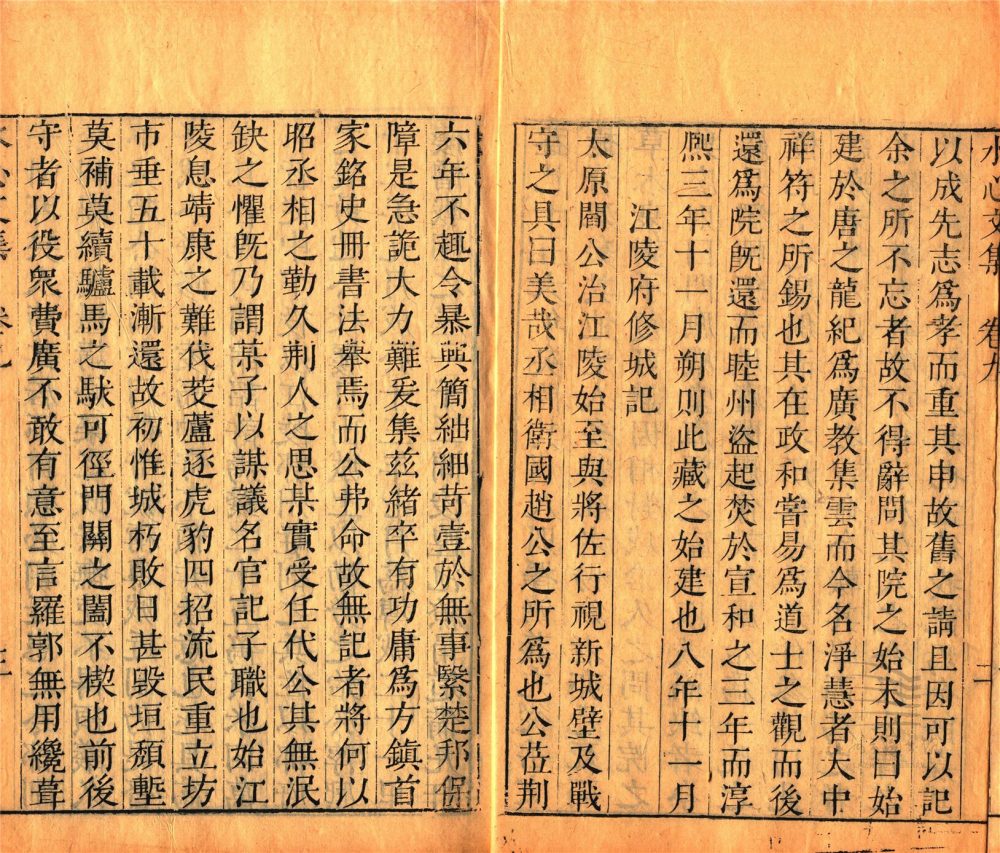 水心文集 卷九 二
以成先志爲孝而重其申故舊之請且因可以記
余之所不忘者故不得辭問其院之始末則曰始
建於唐之龍紀爲廣教集雲而今名淨慧者大中
祥符之所錫也其在政和嘗易爲道士之觀而後
還爲院旣還而睦州盜起焚於宣和之三年而淳
熈三年十一月朔則此藏之始建也八年十一月
江陵府修城記
太原閻公治江陵始至與將佐行視新城壁及戰
守之具曰美哉丞相衛國趙公之所爲也公莅荆
六年不趣令暴興簡紬細苛壹於無事緊楚邦保
障是急詭大力難爰集茲緒卒有功庸爲方鎮首
家銘史冊書法舉焉而公弗命故無記者將何以
昭丞相之勤久荆人之思某實受任代公其無泯
缺之懼旣乃謂某子以謀議名官記子職也始江
陵息靖康之難伐茭蘆逐虎豹四招流民重立坊
市垂五十載漸還故初惟城朽敗日甚毀垣頽塹
莫補莫續驢馬之馱可徑門闗之闔不楔也前後
守者以役衆費廣不敢有意至言羅郭無用纔葺
水心文集 卷九 三